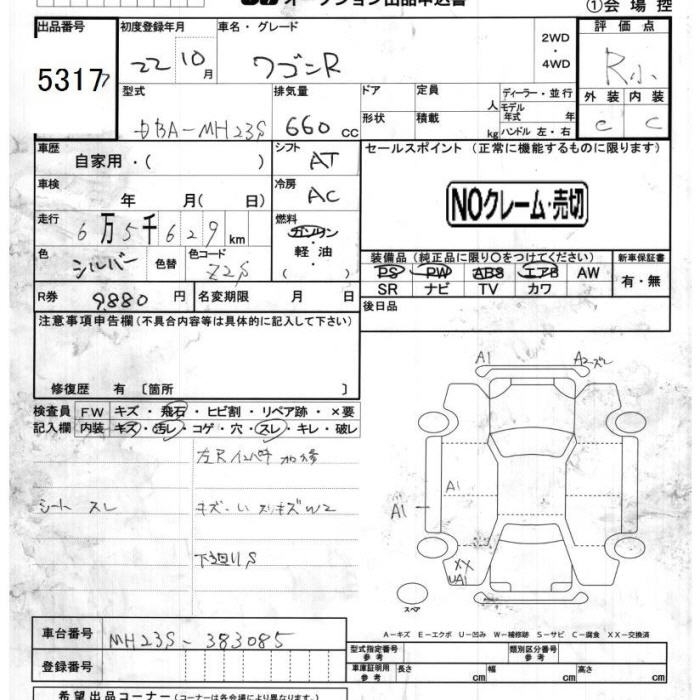 オークション出品申込書
①会場控
出品番号 初度登録年月 車名・グレード 2WD・4WD 評価点
53177 22 10月 ワゴンR R小
型式 排気量 ドア 定員 人 ディーラー・並行 外装 内装
DBA-MH23S 660cc 形状 積載 kg モデル年式 年 ハンドル 左・右 C C
車歴 自家用・( ) シフト AT セールスポイント (正常に機能するものに限ります)
車検 年 月(日) 冷房 AC NOクレーム・売切
走行 6万5千629km 燃料 ガソリン・軽油・( )
色 シルバー 色替 色コード Z2S
装備品 (純正品に限り○をつけてください) 新車保証書
PS PW ABS エアB AW 有・無
SR ナビ TV カワ
R券 9,880円 名変期限 月 日 後日品
注意事項申告欄(不具合内容等は具体的に記入して下さい)
修復歴 有 〔箇所 〕
検査員記入欄 FW キズ・飛石・ヒビ割・リペア跡・×要
内装 キズ・汚レ・コゲ・穴・スレ・キレ・破レ
シート スレ
キズ・凹
下廻りS
A1
A2
A1
A1
XX
UA1
スペア
A-キズ E-エクボ U-凹み W-補修跡 S-サビ C-腐食 XX-交換済
車台番号 MH23S-383085
登録番号
型式指定番号 参考 類別区分番号 参考
車庫証明用 参考 長さ cm 幅 cm 高さ cm
希望出品コーナー(コーナーは各会場により異なります)